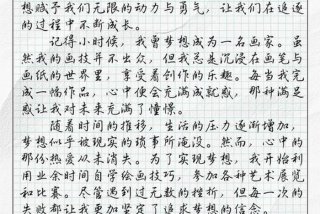 想赋予我们无限的动力与勇气，让我们在追逐
的过程中不断成长。
记得小时候，我曾梦想成为一名画家。虽
然我的画技并不出众，但我总是沉浸在画笔与
画纸的世界里，享受着创作的乐趣。每当我完
成一幅作品，心中便会充满成就感，那种满足
感让我对未来充满了憧憬。
随着时间的推移，生活的压力逐渐增加，
梦想似乎被现实的琐事所淹没。然而，心中的
那份热爱从未消失。为了实现梦想，我开始利
用业余时间自学绘画技巧，参加各种艺术展览
和比赛。尽管遇到过无数的挫折，但每一次的
失败都让我更加坚定了追求梦想的信念。